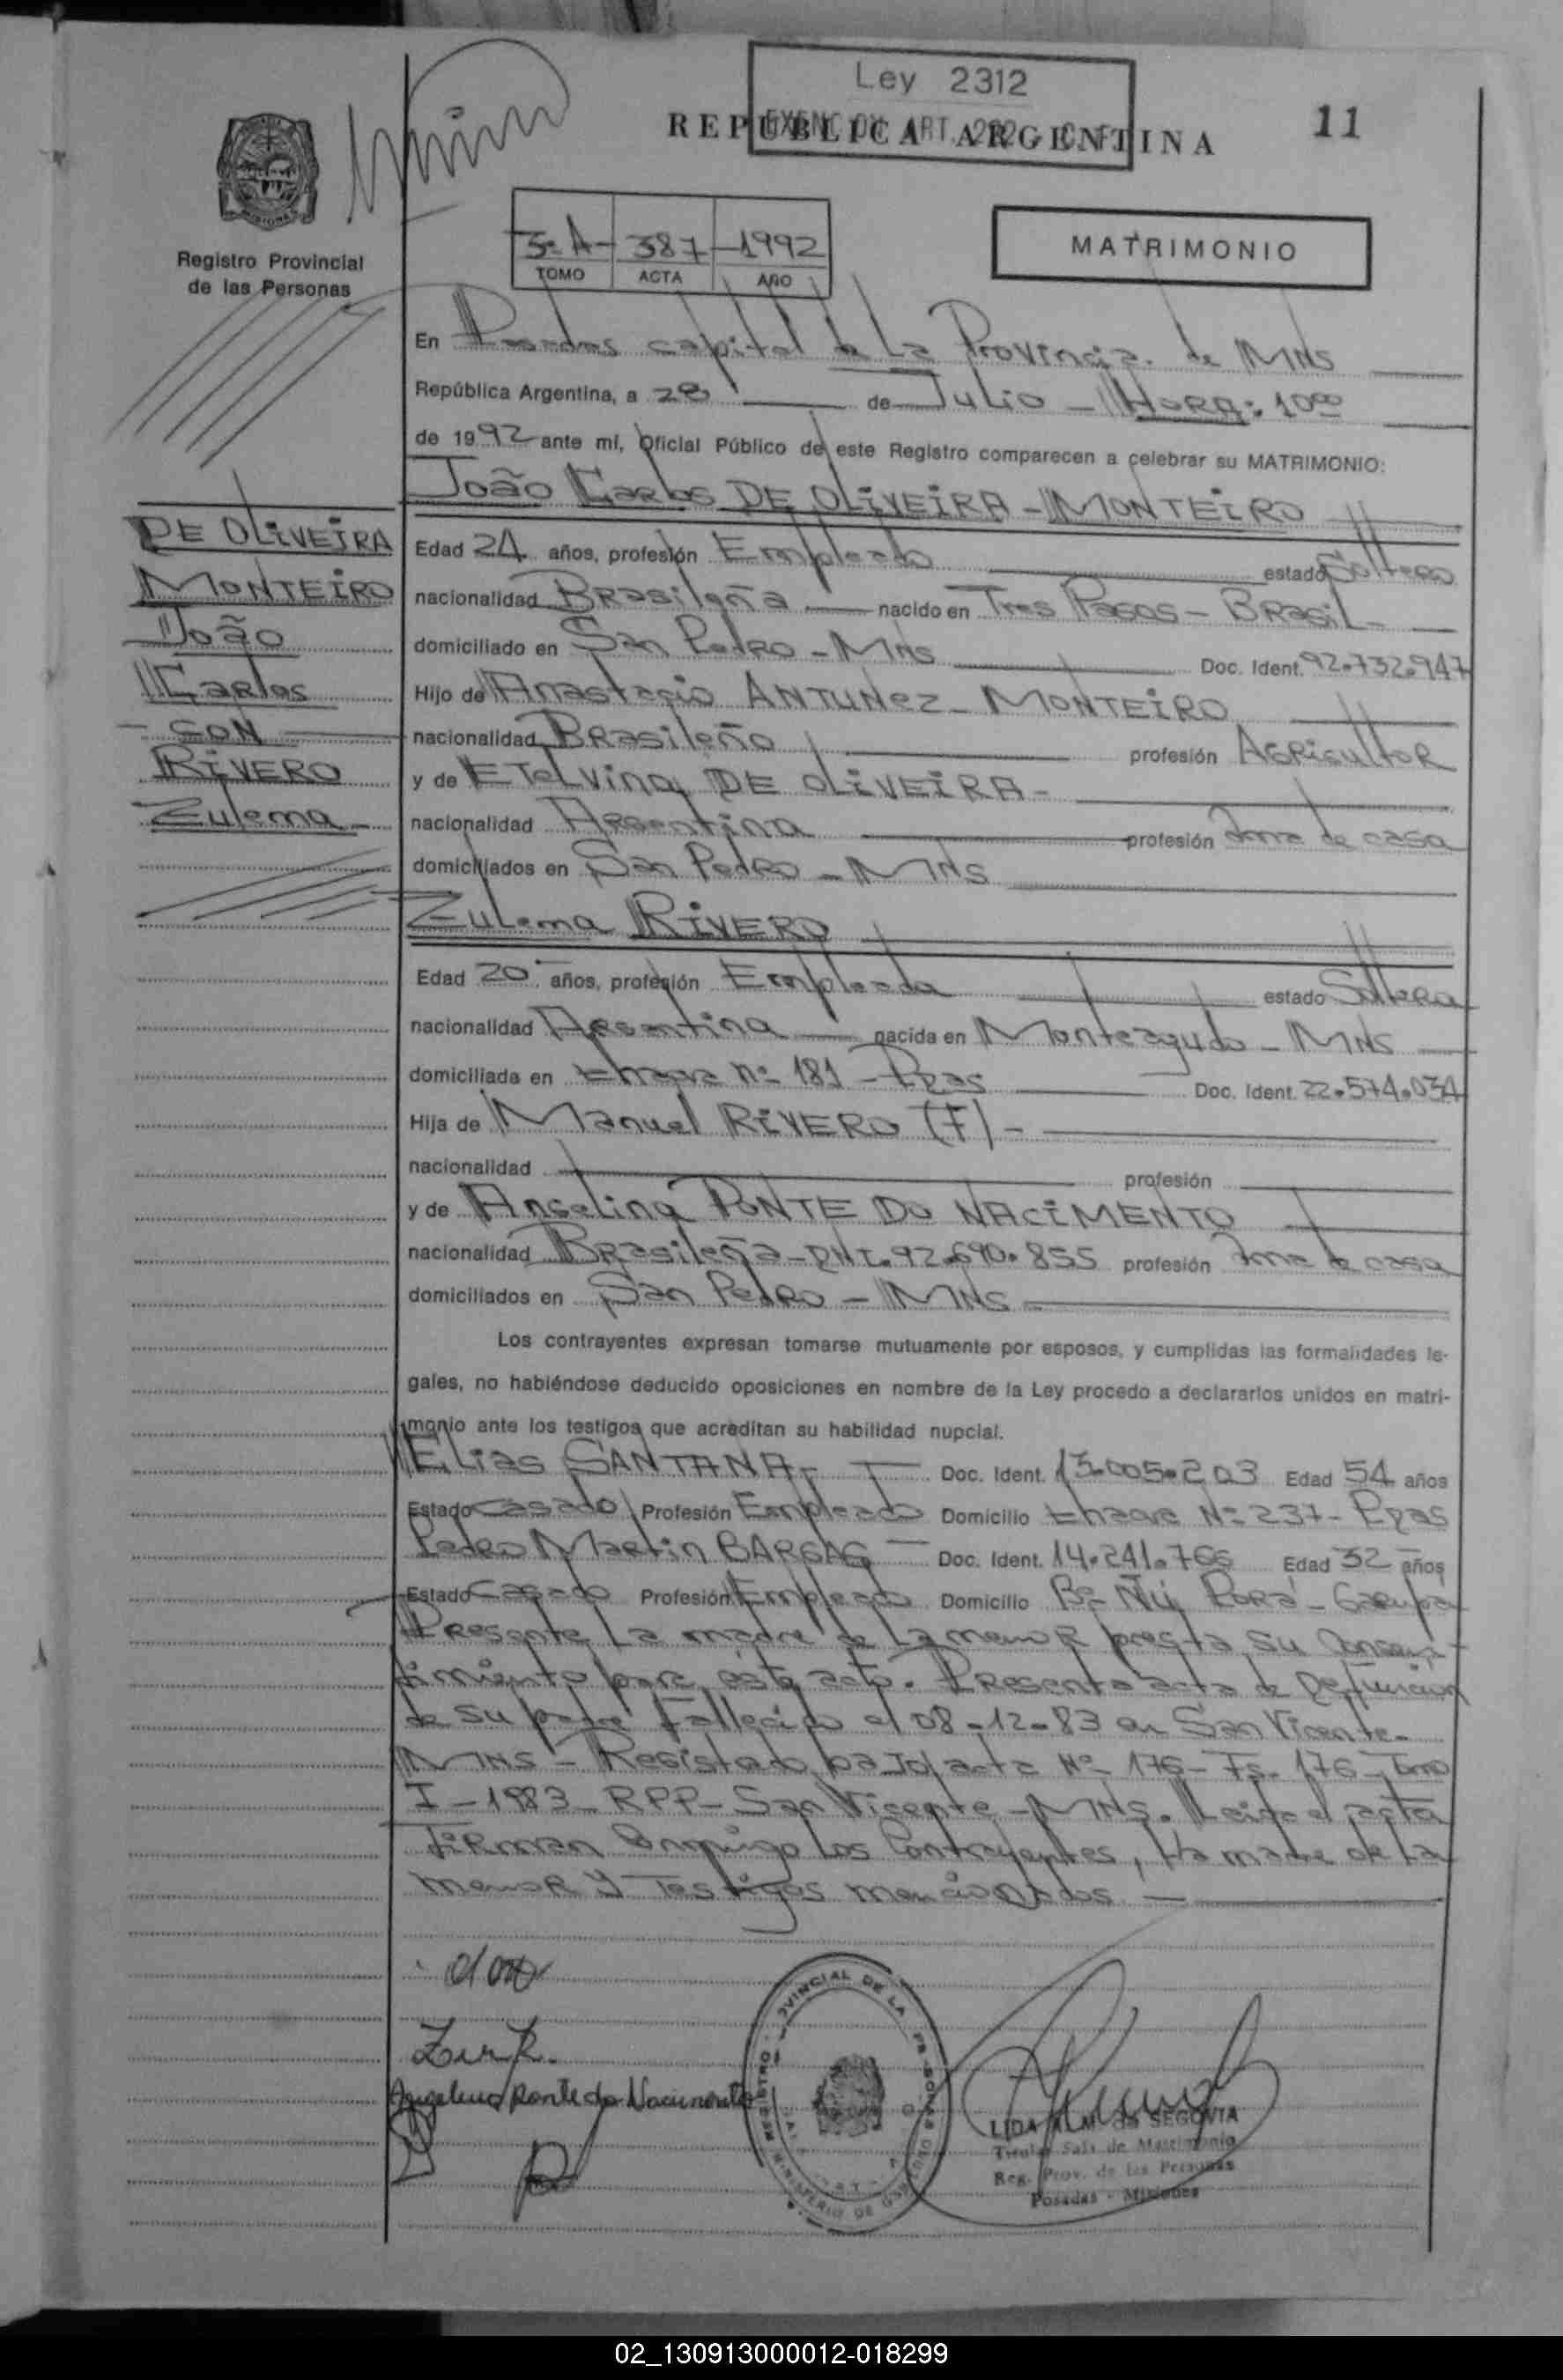 Ley 2312
REPUBLICA ARGENTINA
11
Registro Provincial
de las Personas
3º A - 387 - 1992
TOMO ACTA AÑO
MATRIMONIO
En Posadas capital de La Provincia de MNS
República Argentina, a 28 de Julio - HORA: 10⁰⁰
de 1992 ante mí, Oficial Público de este Registro comparecen a celebrar su MATRIMONIO:
João Carlos DE OLIVEIRA - MONTEIRO
DE OLIVEIRA
MONTEIRO
João
Carlos
- CON
RIVERO
Zulema -
Edad 24 años, profesión Empleado estado Soltero
nacionalidad Brasileña nacido en Tres Pasos - Brasil -
domiciliado en San Pedro - MNS Doc. Ident. 92.732.947
Hijo de Anastacio ANTUNEZ - MONTEIRO
nacionalidad Brasileño profesión Agricultor
y de Etelvina DE OLIVEIRA -
nacionalidad Argentina profesión Ama de casa
domiciliados en San Pedro - MNS
Zulema RIVERO
Edad 20 años, profesión Empleada estado Soltera
nacionalidad Argentina nacida en Monteagudo - MNS
domiciliada en nº 181 - Doc. Ident. 22.574.034
Hija de Manuel RIVERO (F) -
nacionalidad profesión
y de Angelina PONTE DO NACIMENTO
nacionalidad Brasileña - DNI. 92.690.855 profesión Ama de casa
domiciliados en San Pedro - MNS -
Los contrayentes expresan tomarse mutuamente por esposos, y cumplidas las formalidades le-
gales, no habiéndose deducido oposiciones en nombre de la Ley procedo a declararlos unidos en matri-
monio ante los testigos que acreditan su habilidad nupcial.
Elias SANTANA - Doc. Ident. 13.005.203 Edad 54 años
Estado Casado Profesión Empleado Domicilio Nº 237 -
Pedro Martin Doc. Ident. 14.241.766 Edad 32 años
Estado Casado Profesión Empleado Domicilio Bº Ñu Porá - Garupá
Presente La madre de La menor presta su Consen-
timiento para este acto. Presenta acta de Defuncion
de su padre Fallecido el 08-12-83 en San Vicente -
MNS - Registrado bajo acta Nº 176 - Fº 176 - Tomo
I - 1983 - RPP - San Vicente - MNS. Leida el acta
Firman Conmigo Los Contrayentes, La madre de La
menor y Testigos mencionados -
Angelina Ponte do Nacimento
REGISTRO PROVINCIAL DE LA
MINISTERIO DE GOBIERNO
LIDA DE SEGOVIA
Titular Sala de Matrimonio
Reg. Prov. de las Personas
Posadas - Misiones
02_130913000012-018299